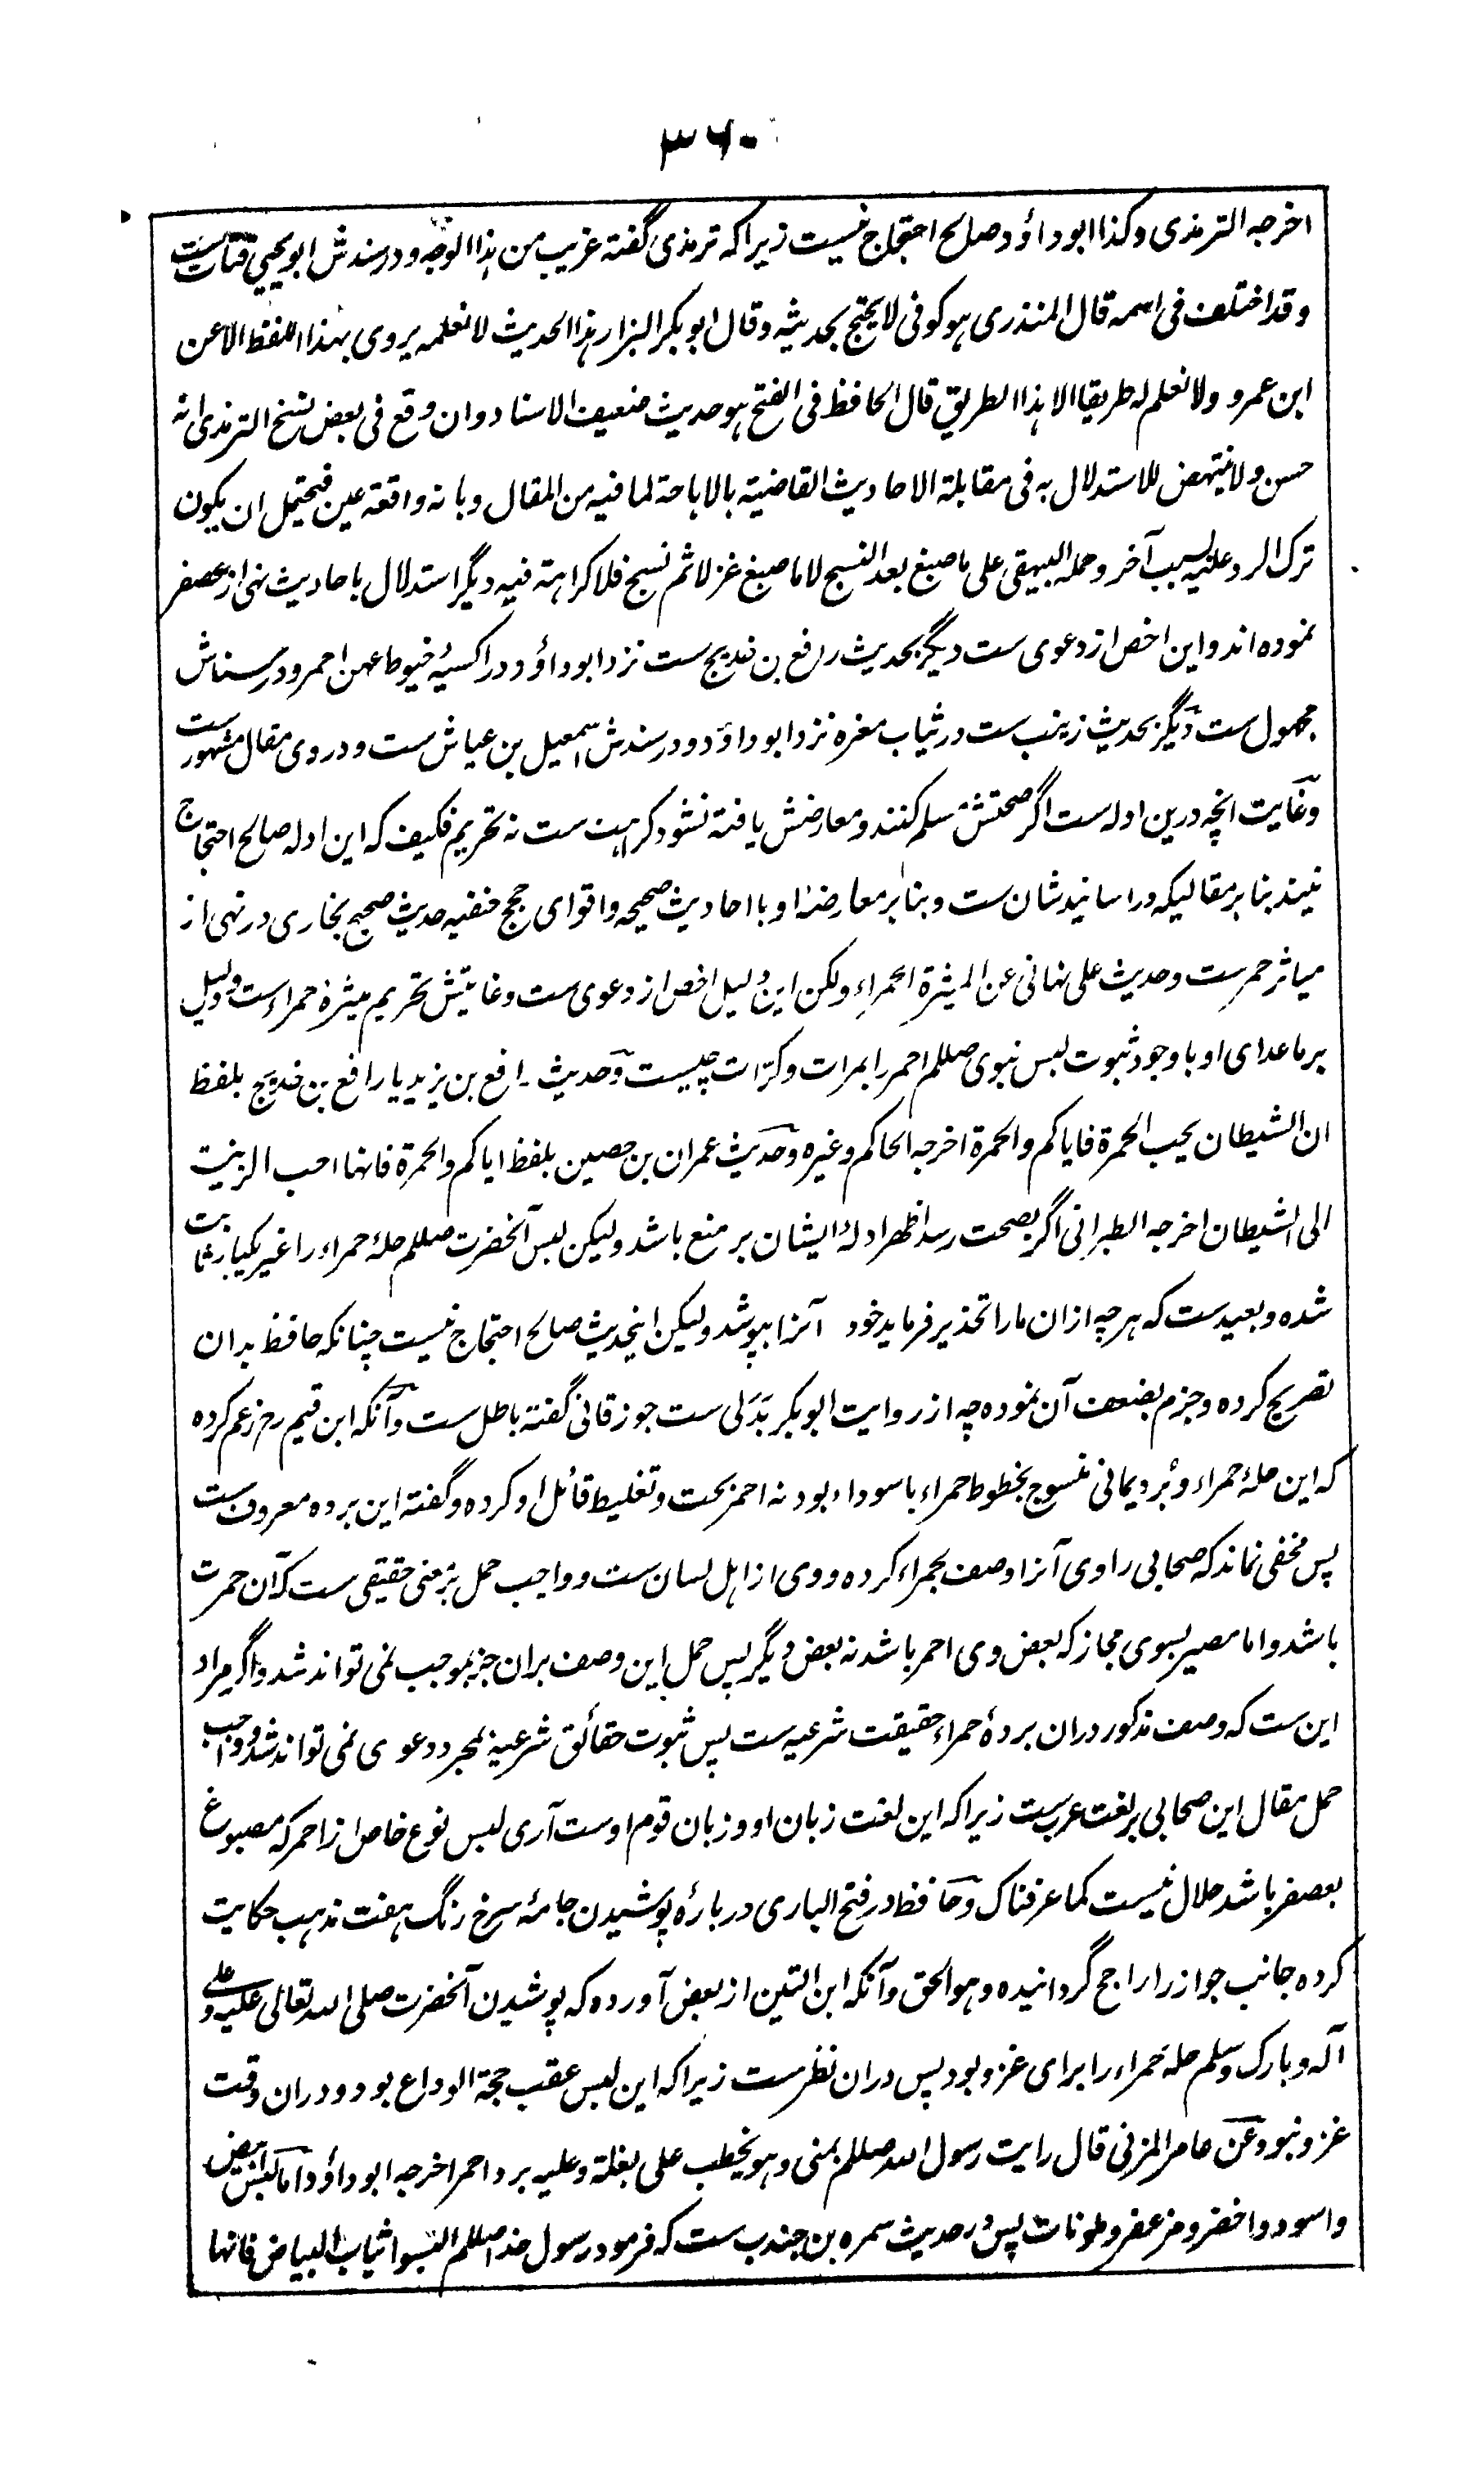 ۳۶۰
اخرجه الترمذی وکذا ابوداؤد وصالح احتجاج نیست زیراکه ترمذی گفته غریب من هذا الوجه ودر سندش ابو یحیی قتات ست
وقد اختلف فی اسمه قال المنذری هو کوفی لا یحتج بحدیثه وقال ابو بکر البزار هذا الحدیث لا نعلمه یروی بهذا اللفظ الا عن
ابن عمرو ولا نعلم له طریقا الا هذا الطریق قال الحافظ فی الفتح هو حدیث ضعیف الاسناد وان وقع فی بعض نسخ الترمذی انه
حسن ولا ینتهض للاستدلال به فی مقابلة الاحادیث القاضیة بالاباحة لما فیه من المقال وبانه واقعة عین فیحتمل ان یکون
ترک الرد علیه لسبب آخر وحمله البیهقی علی ما صبغ بعد النسج لا ما صبغ غزلا ثم نسج فلا کراهة فیه دیگر استدلال باحادیث نهی از معصفر
نموده اند واین اخص از دعوی ست دیگر بحدیث رافع بن خدیج ست نزد ابوداؤد در اکسیهٔ خیوط عهن احمر ودر سناش
مجهول ست دیگر بحدیث زینب ست در ثیاب مغره نزد ابوداؤد ودر سندش اسمعیل بن عیاش ست ودر وی مقال مشهورست
وغایت انچه درین ادله ست اگر صحتش مسلم کنند ومعارضش یافته نشود کراهت ست نه تحریم فکیف که این ادله صالح احتجاج
نیند بنابر مقالیکه در اسانیدشان ست وبنابر معارضهٔ او با احادیث صحیحه واقوای حجج حنفیه حدیث صحیح بخاری در نهی از
میاثر حمرست وحدیث علی نهانی عن المیثرة الحمراء ولکن این دلیل اخص از دعوی ست وغایتش تحریم میثرهٔ حمراء ست ودلیل
بر ماعدای او با وجود ثبوت لبس نبوی صللم احمر را بمرات وکرّات چیست وحدیث رافع بن یزید یا رافع بن خدیج بلفظ
ان الشیطان یحب الحمرة فایاکم والحمرة اخرجه الحاکم وغیره وحدیث عمران بن حصین بلفظ ایاکم والحمرة فانها احب الزینت
الی الشیطان اخرجه الطبرانی اگر بصحت رسد اظهر ادلهٔ ایشان بر منع باشد ولیکن لبس آنحضرت صللم حلهٔ حمراء را غیر یکبار ثابت
شده وبعیدست که هرچه ازان ما را تحذیر فرماید خود آنرا بپوشد ولیکن اینحدیث صالح احتجاج نیست چنانکه حافظ بدان
تصریح کرده وجزم بضعف آن نموده چه از روایت ابوبکر بَدَلی ست جوزقانی گفته باطل ست وآنکه ابن قیم رح زعم کرده
که این حلهٔ حمراء وبُرد یمانی منسوج بخطوط حمراء با سوداء بود نه احمر بحت وتغلیط قائل او کرده وگفته این برده معروف ست
پس مخفی نماند که صحابی راوی آنرا وصف بحمراء کرده ووی از اهل لسان ست وواجب حمل بر معنی حقیقی ست که آن حمرت
باشد واما مصیر بسوی مجاز که بعض وی احمر باشد نه بعض دیگر پس حمل این وصف بران جز بموجب نمی تواند شد واگر مراد
این ست که وصف مذکور دران بردهٔ حمراء حقیقت شرعیه ست پس ثبوت حقائق شرعیه بمجرد دعوی نمی تواند شد وواجب
حمل مقال این صحابی بر لغت عرب ست زیراکه این لغت زبان او وزبان قوم اوست آری لبس نوع خاص از احمر که مصبوغ
بعصفر باشد حلال نیست کما عرفناک وحافظ در فتح الباری دربارهٔ پوشیدن جامهٔ سرخ رنگ هفت مذهب حکایت
کرده جانب جواز را راجح گردانیده وهو الحق وآنکه ابن التین از بعض آورده که پوشیدن آنحضرت صلی الله تعالی علیه وعلی
آله وبارک وسلم حلهٔ حمراء را برای غزو بود پس دران نظرست زیراکه این لبس عقب حجة الوداع بود ودران وقت
غزو نبود وعن عامر المزنی قال رایت رسول الله صللم بمنی وهو یخطب علی بغلة وعلیه برد احمر اخرجه ابوداؤد واما لبس ابیض
واسود واخضر ومزعفر وملونات پس در حدیث سمره بن جندب ست که فرمود رسول خدا صللم البسوا ثیاب البیاض فانها